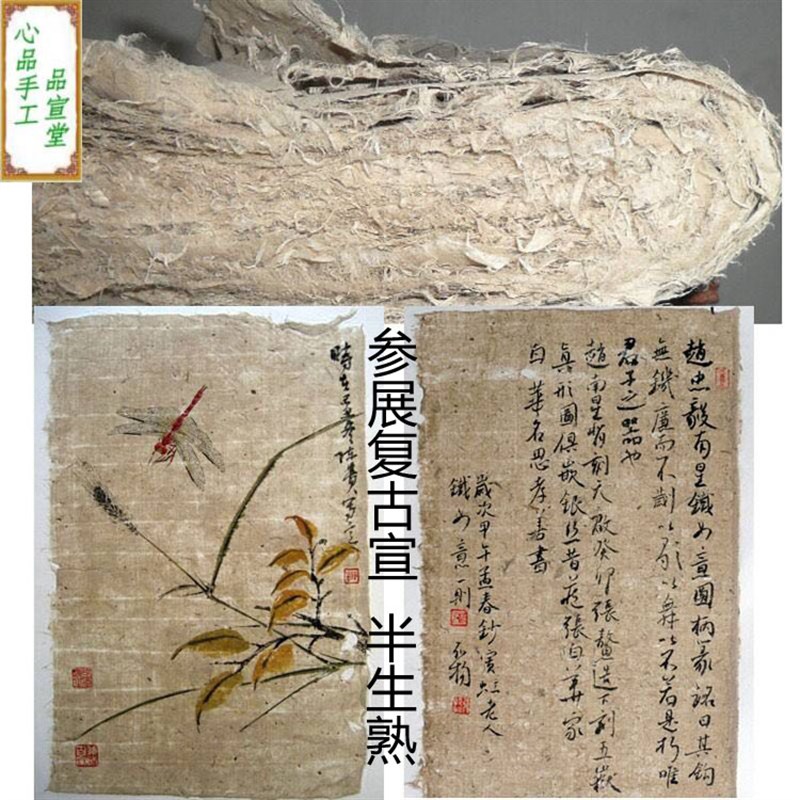 心品手工
品宣堂
参展复古宣 半生熟
時在
趙忠毅南星鐵如意圖柄篆銘曰其鈎
無鐖廉而不劌以歌以舞以不若是折唯
君子之器也
趙南星刻天啟癸卯張鰲造下刻五嶽
真形圖俱嵌銀絲昔藏張伯華家
自華名思孝善書
歲次甲午孟春鈔賓虹老人
鐵如意一則